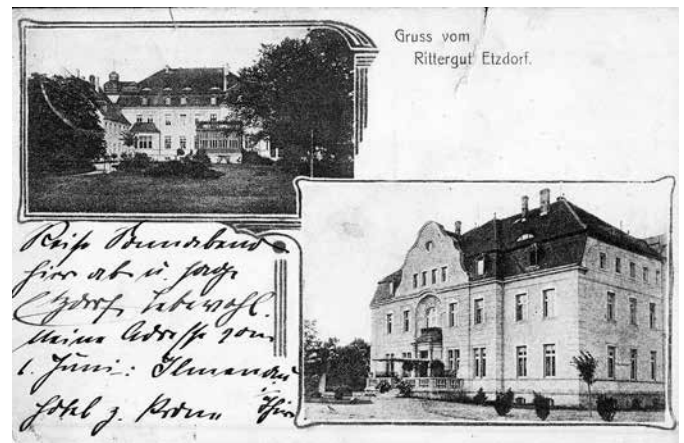 Gruss vom
Rittergut Etzdorf.
Reise Sonnabend
hier ab u. sage
Etzdorf Lebewohl.
Meine Adresse vom
1. Juni: Ilmenau
Hotel z. Krone Thür